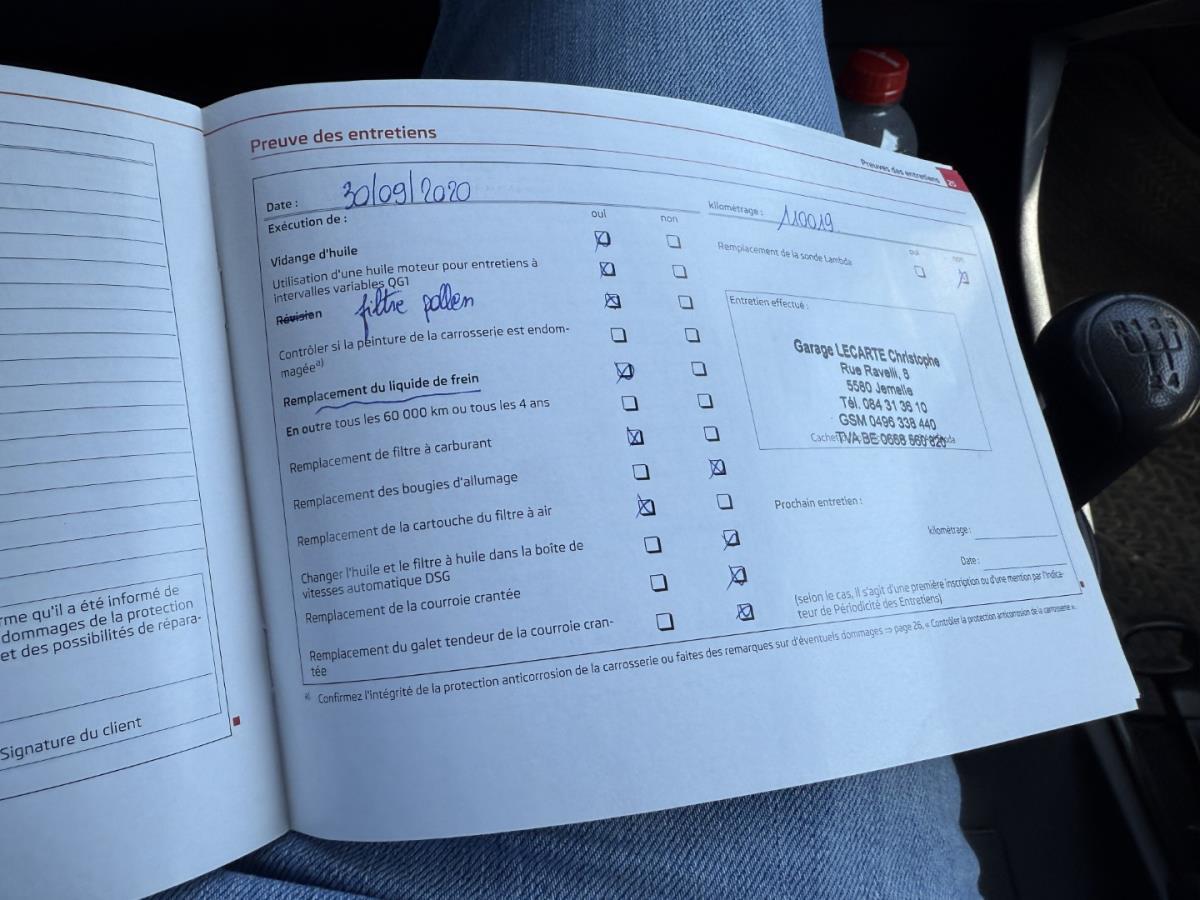 rme qu'il a été informé de
dommages de la protection
et des possibilités de répara-
Signature du client
Preuves des entretiens 25
Preuve des entretiens
Date : 30/09/2020
kilométrage : 110019
Exécution de :
oui non
Vidange d'huile
Utilisation d'une huile moteur pour entretiens à
intervalles variables QG1
Révision filtre pollen
Contrôler si la peinture de la carrosserie est endom-
magéeª⁾
Remplacement du liquide de frein
En outre tous les 60 000 km ou tous les 4 ans
Remplacement de filtre à carburant
Remplacement des bougies d'allumage
Remplacement de la cartouche du filtre à air
Changer l'huile et le filtre à huile dans la boîte de
vitesses automatique DSG
Remplacement de la courroie crantée
Remplacement du galet tendeur de la courroie cran-
tée
oui non
Remplacement de la sonde Lambda
Entretien effectué :
Garage LECARTE Christophe
Rue Ravelli, 8
5580 Jemelle
Tél. 084 31 36 10
GSM 0496 338 440
TVA BE 0668 560 820
Cachet
Prochain entretien :
kilométrage :
Date :
(selon le cas, il s'agit d'une première inscription ou d'une mention par l'indica-
teur de Périodicité des Entretiens)
ª⁾ Confirmez l'intégrité de la protection anticorrosion de la carrosserie ou faites des remarques sur d'éventuels dommages ⇒ page 26, « Contrôler la protection anticorrosion de la carrosserie ».
5 3 1
4